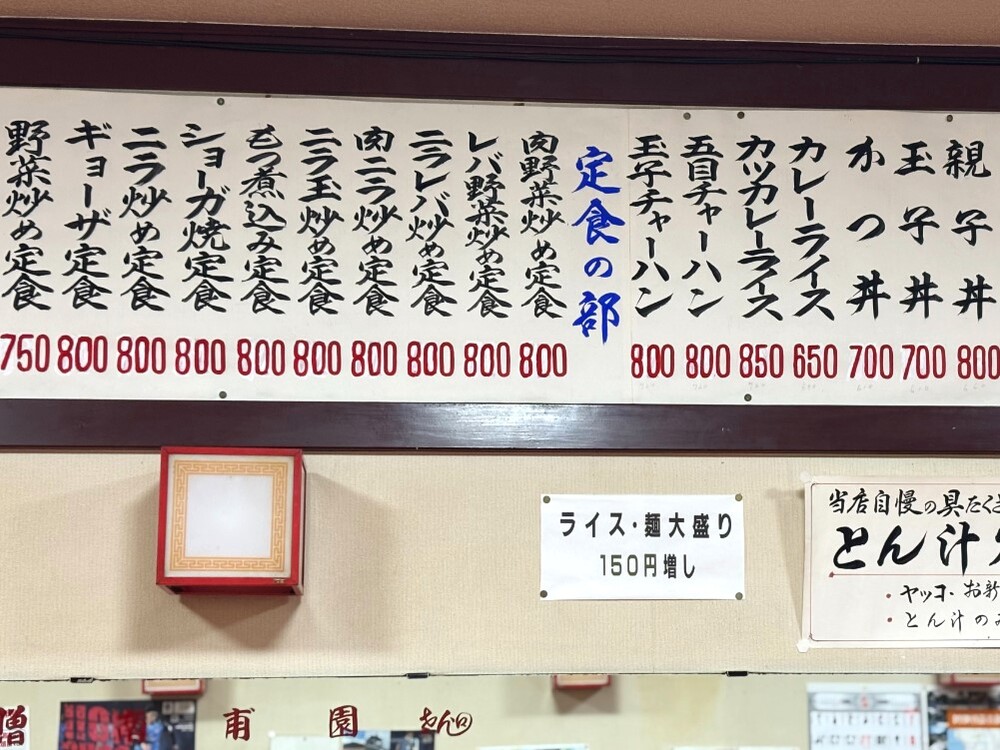 親子丼 800
玉子丼 700
かつ丼 700
カレーライス 650
カツカレーライス 850
五目チャーハン 800
玉子チャーハン 800
定食の部
肉野菜炒め定食 800
レバ野菜炒め定食 800
ニラレバ炒め定食 800
肉ニラ炒め定食 800
ニラ玉炒め定食 800
もつ煮込み定食 800
ショーガ焼定食 800
ニラ炒め定食 800
ギョーザ定食 800
野菜炒め定食 750
ライス・麺大盛り
150円増し
当店自慢の具たくさ
とん汁
・ヤッコ・お新
・とん汁のみ
園